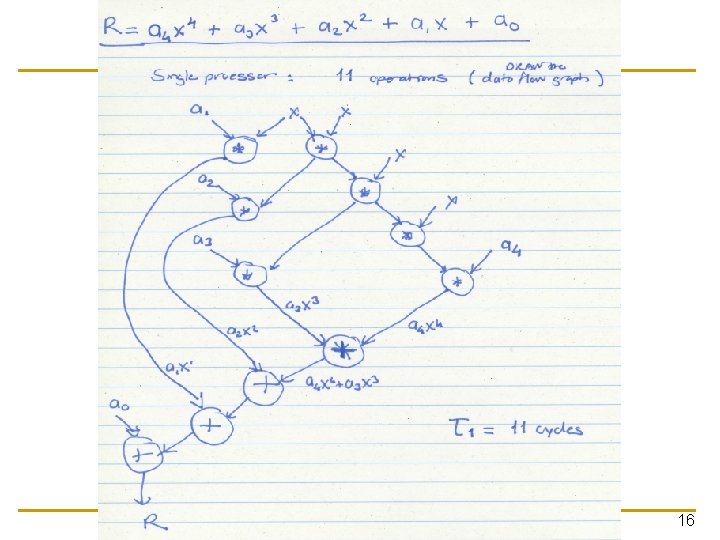 R = a4x^4 + a3x^3 + a2x^2 + a1x + a0
Single processor : 11 operations (DRAW the data flow graph)
a1 x x
* * x
a2 * x
* *
a3 a4
* *
a3x^3
a2x^2 a4x^4
*
a1x'
+ a4x^4+a3x^3
a0
+ T1 = 11 cycles
+
R
16